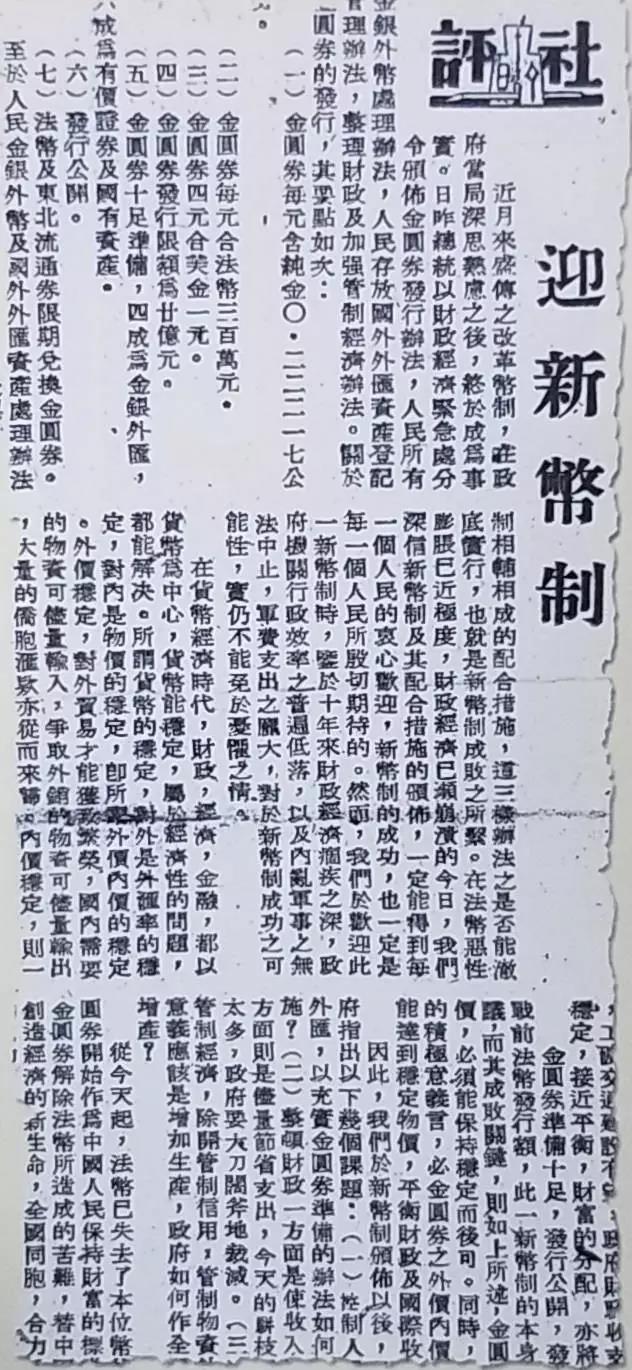 社評
迎新幣制
近月來盛傳之改革幣制,在政
府當局深思熟慮之後,終於成爲事
實。日昨總統以財政經濟緊急處分
令頒佈金圓券發行辦法,人民所有
金銀外幣處理辦法,人民存放國外外匯資產登記
管理辦法,整理財政及加强管制經濟辦法。關於
圓券的發行,其要點如次:
(一)金圓券每元含純金〇・二二二一七公
。
(二)金圓券每元合法幣三百萬元。
(三)金圓券四元合美金一元。
(四)金圓券發行限額爲廿億元。
(五)金圓券十足準備,四成爲金銀外匯,
六成爲有價證券及國有資產。
(六)發行公開。
(七)法幣及東北流通券限期兌換金圓券。
至於人民金銀外幣及國外外匯資產處理辦法
制相輔相成的配合措施,這三樣辦法之是否能澈
底實行,也就是新幣制成敗之所繫。在法幣惡性
膨脹已近極度,財政經濟已瀕崩潰的今日,我們
深信新幣制及其配合措施的頒佈,一定能得到每
一個人民的衷心歡迎,新幣制的成功,也一定是
每一個人民所殷切期待的。然而,我們於歡迎此
一新幣制時,鑒於十年來財政經濟痼疾之深,政
府機關行政效率之普遍低落,以及內亂軍事之無
法中止,軍費支出之龐大,對於新幣制成功之可
能性,實仍不能免於憂懼之情。
在貨幣經濟時代,財政,經濟,金融,都以
貨幣爲中心,貨幣能穩定,屬於經濟性的問題,
都能解決。所謂貨幣的穩定,對外是外匯率的穩
定,對內是物價的穩定,卽所謂外價內價的穩定
。外價穩定,對外貿易才能獲致繁榮,國內需要
的物資可儘量輸入,爭取外銷的物資可儘量輸出
,大量的僑胞滙欵亦從而來歸。內價穩定,則一
,工礦交通建設有望,政府財政收支
穩定,接近平衡,財富的分配,亦將
金圓券準備十足,發行公開,發
戰前法幣發行額,此一新幣制的本身
議,而其成敗關鍵,則如上所述,金圓
價,必須能保持穩定而後可。同時,
的積極意義言,必金圓券之外價內價
能達到穩定物價,平衡財政及國際收
因此,我們於新幣制頒佈以後,
府指出以下幾個課題:(一)控制人
外匯,以充實金圓券準備的辦法如何
施?(二)整頓財政一方面是使收入
方面則是儘量節省支出,今天的駢枝
太多,政府要大刀闊斧地裁減。(三
管制經濟,除開管制信用,管制物資
意義應該是增加生產,政府如何作全
增產?
從今天起,法幣已失去了本位幣
圓券開始作爲中國人民保持財富的標
金圓券解除法幣所造成的苦難,替中
創造經濟的新生命,全國同胞,合力